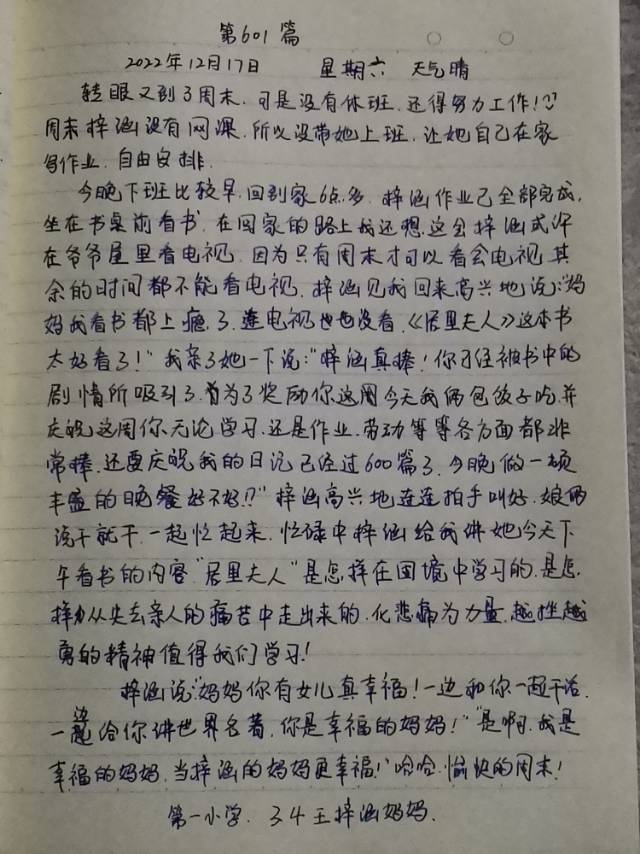 第601篇
2022年12月17日 星期六 天气晴
转眼又到了周末,可是没有休班,还得努力工作!
周末梓涵没有网课,所以没带她上班,让她自己在家
写作业,自由安排.
今晚下班比较早,回到家6点多,梓涵作业已全部完成,
坐在书桌前看书,在回家的路上我还想,这会梓涵或许
在爷爷屋里看电视,因为只有周末才可以看会电视,其
余的时间都不能看电视,梓涵见我回来高兴地说:“妈
妈我看书都上瘾了,连电视也没看,《居里夫人》这本书
太好看了!”我亲了她一下说:“梓涵真棒!你已经被书中的
剧情所吸引了,为了奖励你这周今天我俩包饺子吃,并
庆祝这周你无论学习,还是作业,劳动等等各方面都非
常棒,还要庆祝我的日记已经过600篇了,今晚做一顿
丰盛的晚餐好不好!?”梓涵高兴地连连拍手叫好,娘两
说干就干,一起忙起来,忙碌中梓涵给我讲她今天下
午看书的内容“居里夫人”是怎样在困境中学习的,是怎
样从失去亲人的痛苦中走出来的,化悲痛为力量,越挫越
勇的精神值得我们学习!
梓涵说:“妈妈你有女儿真幸福!一边和你一起干活,
一边给你讲世界名著,你是幸福的妈妈!”“是啊,我是
幸福的妈妈,当梓涵的妈妈更幸福!”哈哈,愉快的周末!
第一小学.34王梓涵妈妈.